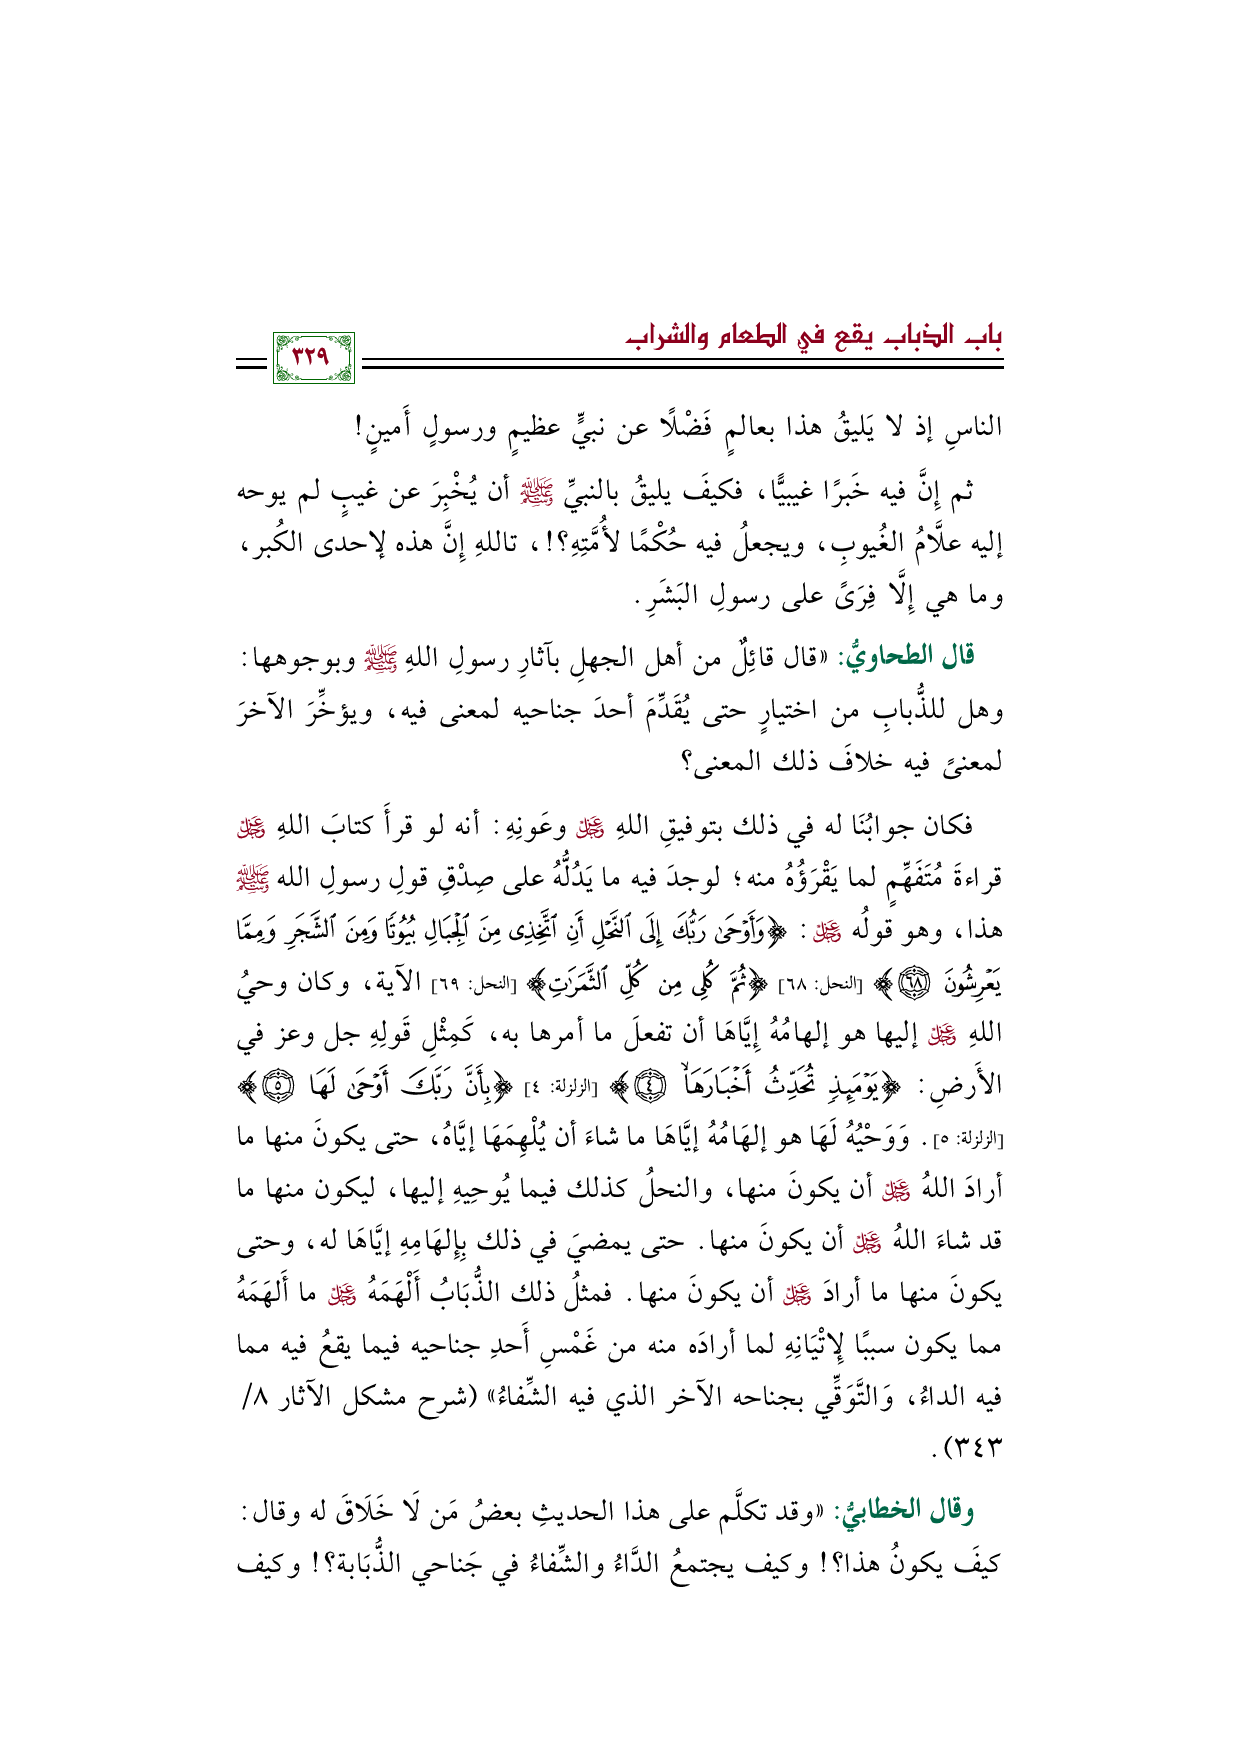 باب الذباب يقع في الطعام والشراب
٣٢٩
الناسِ إذ لا يَليقُ هذا بعالمٍ فَضْلًا عن نبيٍّ عظيمٍ ورسولٍ أَمينٍ!
ثم إِنَّ فيه خَبرًا غيبيًّا، فكيفَ يليقُ بالنبيِّ ﷺ أن يُخْبِرَ عن غيبٍ لم يوحه
إليه علَّامُ الغُيوبِ، ويجعلُ فيه حُكْمًا لأُمَّتِهِ؟!، تاللهِ إِنَّ هذه لإحدى الكُبر،
وما هي إِلَّا فِرَىً على رسولِ البَشَرِ.
قال الطحاويُّ: «قال قائِلٌ من أهل الجهلِ بآثارِ رسولِ اللهِ ﷺ وبوجوهها:
وهل للذُّبابِ من اختيارٍ حتى يُقَدِّمَ أحدَ جناحيه لمعنى فيه، ويؤخِّرَ الآخرَ
لمعنىً فيه خلافَ ذلك المعنى؟
فكان جوابُنَا له في ذلك بتوفيقِ اللهِ عَزَّ وَجَلَّ وعَونِهِ: أنه لو قرأَ كتابَ اللهِ عَزَّ وَجَلَّ
قراءةَ مُتَفَهِّمٍ لما يَقْرَؤُهُ منه؛ لوجدَ فيه ما يَدُلُّهُ على صِدْقِ قولِ رسولِ الله ﷺ
هذا، وهو قولُه عَزَّ وَجَلَّ: ﴿وَأَوۡحَىٰ رَبُّكَ إِلَى ٱلنَّحۡلِ أَنِ ٱتَّخِذِى مِنَ ٱلۡجِبَالِ بُيُوتٗا وَمِنَ ٱلشَّجَرِ وَمِمَّا
يَعۡرِشُونَ ٦٨﴾ [النحل: ٦٨] ﴿ثُمَّ كُلِى مِن كُلِّ ٱلثَّمَرَٰتِ﴾ [النحل: ٦٩] الآية، وكان وحيُ
اللهِ عَزَّ وَجَلَّ إليها هو إلهامُهُ إِيَّاهَا أن تفعلَ ما أمرها به، كَمِثْلِ قَولِهِ جل وعز في
الأَرضِ: ﴿يَوۡمَئِذٖ تُحَدِّثُ أَخۡبَارَهَا ٤﴾ [الزلزلة: ٤] ﴿بِأَنَّ رَبَّكَ أَوۡحَىٰ لَهَا ٥﴾
[الزلزلة: ٥]. وَوَحْيُهُ لَهَا هو إلهَامُهُ إيَّاهَا ما شاءَ أن يُلْهِمَهَا إيَّاهُ، حتى يكونَ منها ما
أرادَ اللهُ عَزَّ وَجَلَّ أن يكونَ منها، والنحلُ كذلك فيما يُوحِيهِ إليها، ليكون منها ما
قد شاءَ اللهُ عَزَّ وَجَلَّ أن يكونَ منها. حتى يمضيَ في ذلك بِإِلهَامِهِ إيَّاهَا له، وحتى
يكونَ منها ما أرادَ عَزَّ وَجَلَّ أن يكونَ منها. فمثلُ ذلك الذُّبَابُ أَلْهَمَهُ عَزَّ وَجَلَّ ما أَلهَمَهُ
مما يكون سببًا لإِتْيَانِهِ لما أرادَه منه من غَمْسِ أَحدِ جناحيه فيما يقعُ فيه مما
فيه الداءُ، وَالتَّوَقِّي بجناحه الآخر الذي فيه الشِّفاءُ» (شرح مشكل الآثار ٨/
٣٤٣).
وقال الخطابيُّ: «وقد تكلَّم على هذا الحديثِ بعضُ مَن لَا خَلَاقَ له وقال:
كيفَ يكونُ هذا؟! وكيف يجتمعُ الدَّاءُ والشِّفاءُ في جَناحي الذُّبَابة؟! وكيف